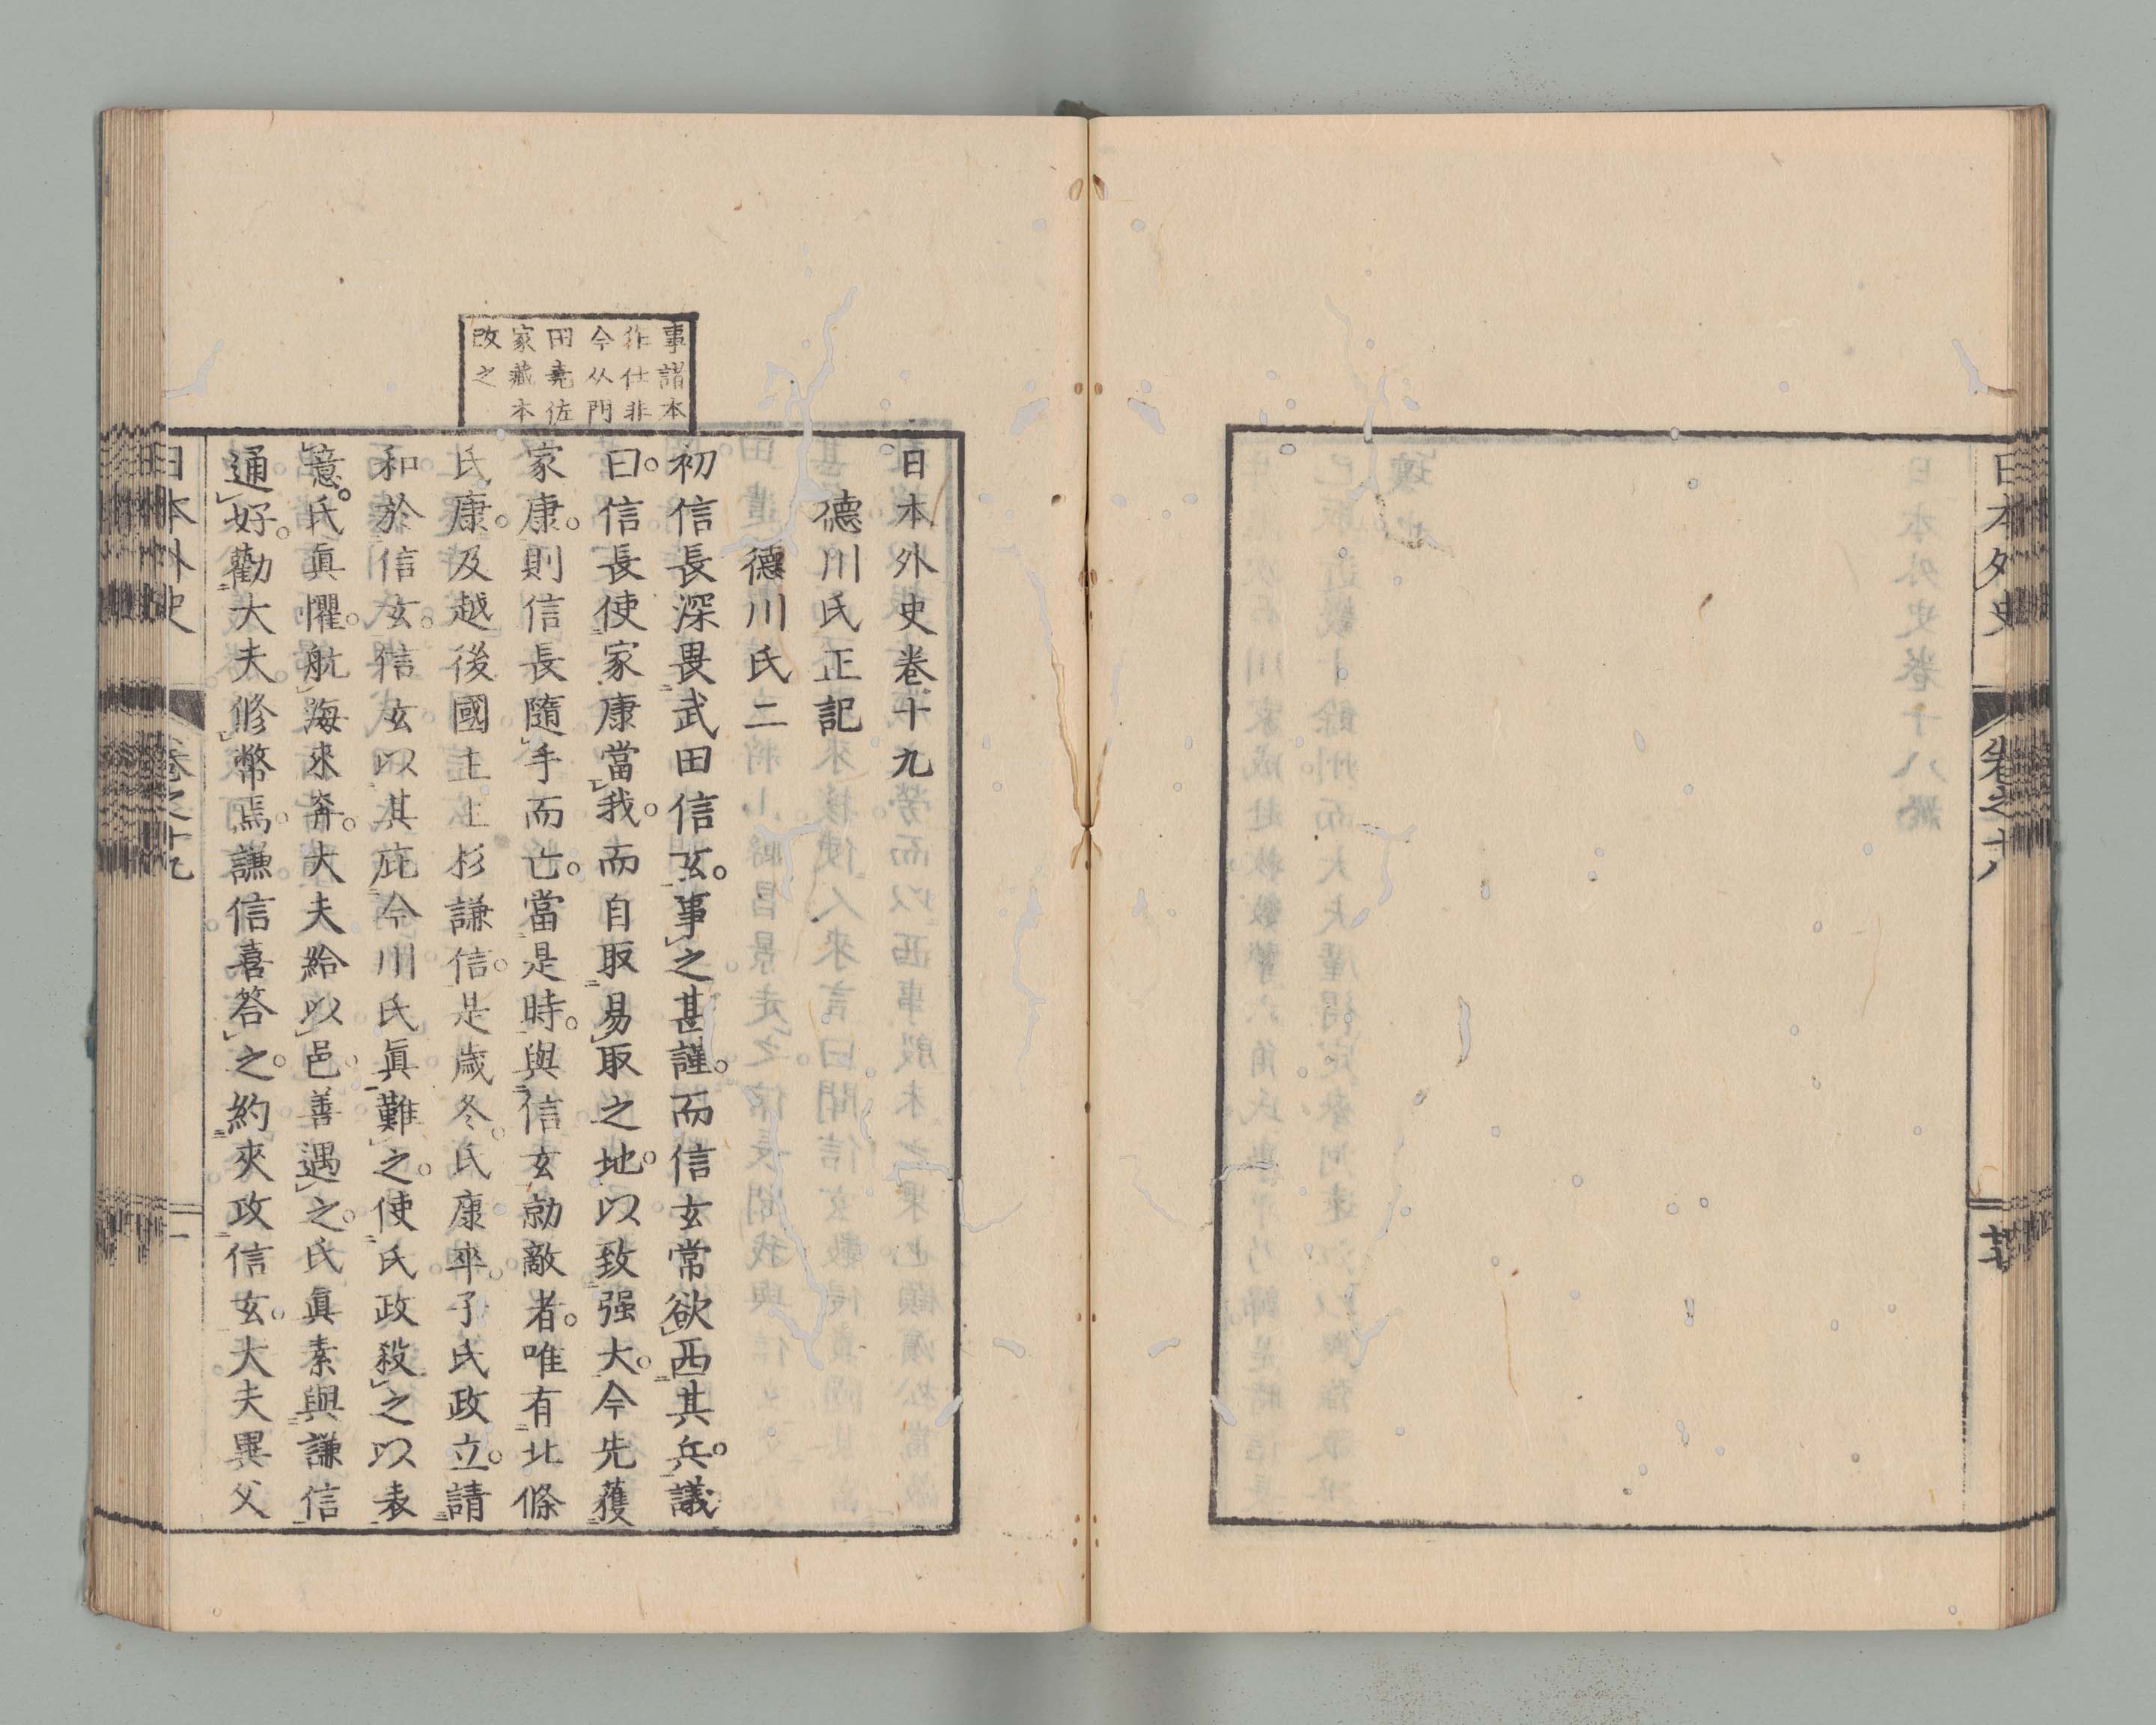 日本外史
卷之十八
日本外史卷十九
德川氏正記
德川氏二
初信長深畏武田信玄。事之甚謹。而信玄常欲西其兵。議
曰。信長使家康當我。而自取易取之地。以致强大。今先獲
家康。則信長隨手而亡。當是時。與信玄勍敵者。唯有北條
氏康。及越後國主上杉謙信。是歲冬。氏康卒。子氏政立。請
和於信玄。信玄以其庇今川氏眞難之。使氏政殺之以表
意。氏眞懼。航海來奔。大夫給以邑善遇之。氏眞素與謙信
通好。勸大夫修幣焉。謙信喜答之。約夾攻信玄。大夫異父
事謂本
作仕非
今从門
田堯佐
家藏本
改之
日本外史
卷之十九
一